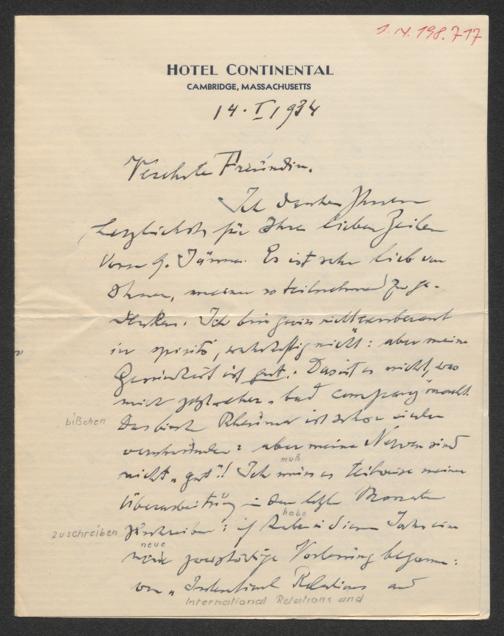 1.N.198.717
HOTEL CONTINENTAL
CAMBRIDGE, MASSACHUSETTS
14. I 1934
Verehrte Freundin.
Ich danke Ihnen
herzlichst für Ihre lieben Zeilen
vom 9. Jänner. Es ist sehr lieb von
Ihnen, meiner so teilnehmend zu ge-
denken. Ich bin gewiss nicht
in spirits, wahrhaftig nicht: aber meine
ist gut: Das ist es nicht, was
mich "bad company" macht.
bißchen
Das Rheuma ist schon wieder
verschwunden: aber meine Nerven sind
muß
nicht "gut"! Ich muss es teilweise meiner
Überarbeitung in den letzten Monaten
habe
zuschreiben
zuschreiben: ich habe in diesem Jahr eine
neue
neue Vorlesung begonnen:
von "International Relations and
International Relations and